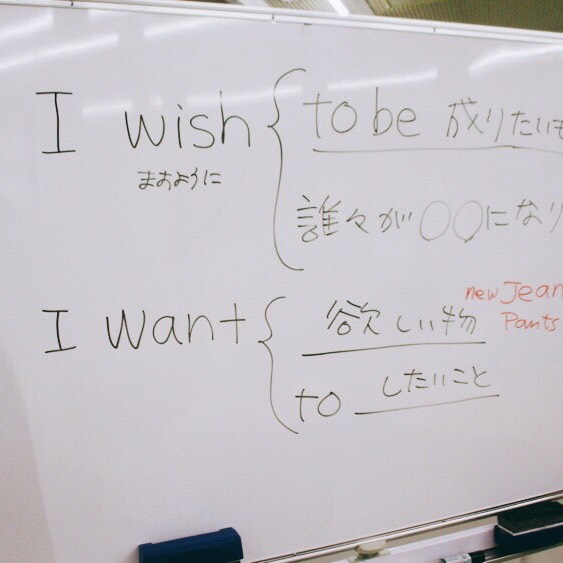 I wish { to be 成りたいも
ますように
誰々が〇〇になり
I want { 欲しい物 new Jean
Pants
to したいこと